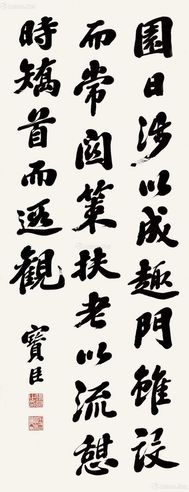 園日涉以成趣門雖設
而常関策扶老以流憩
時矯首而遐観
寶臣